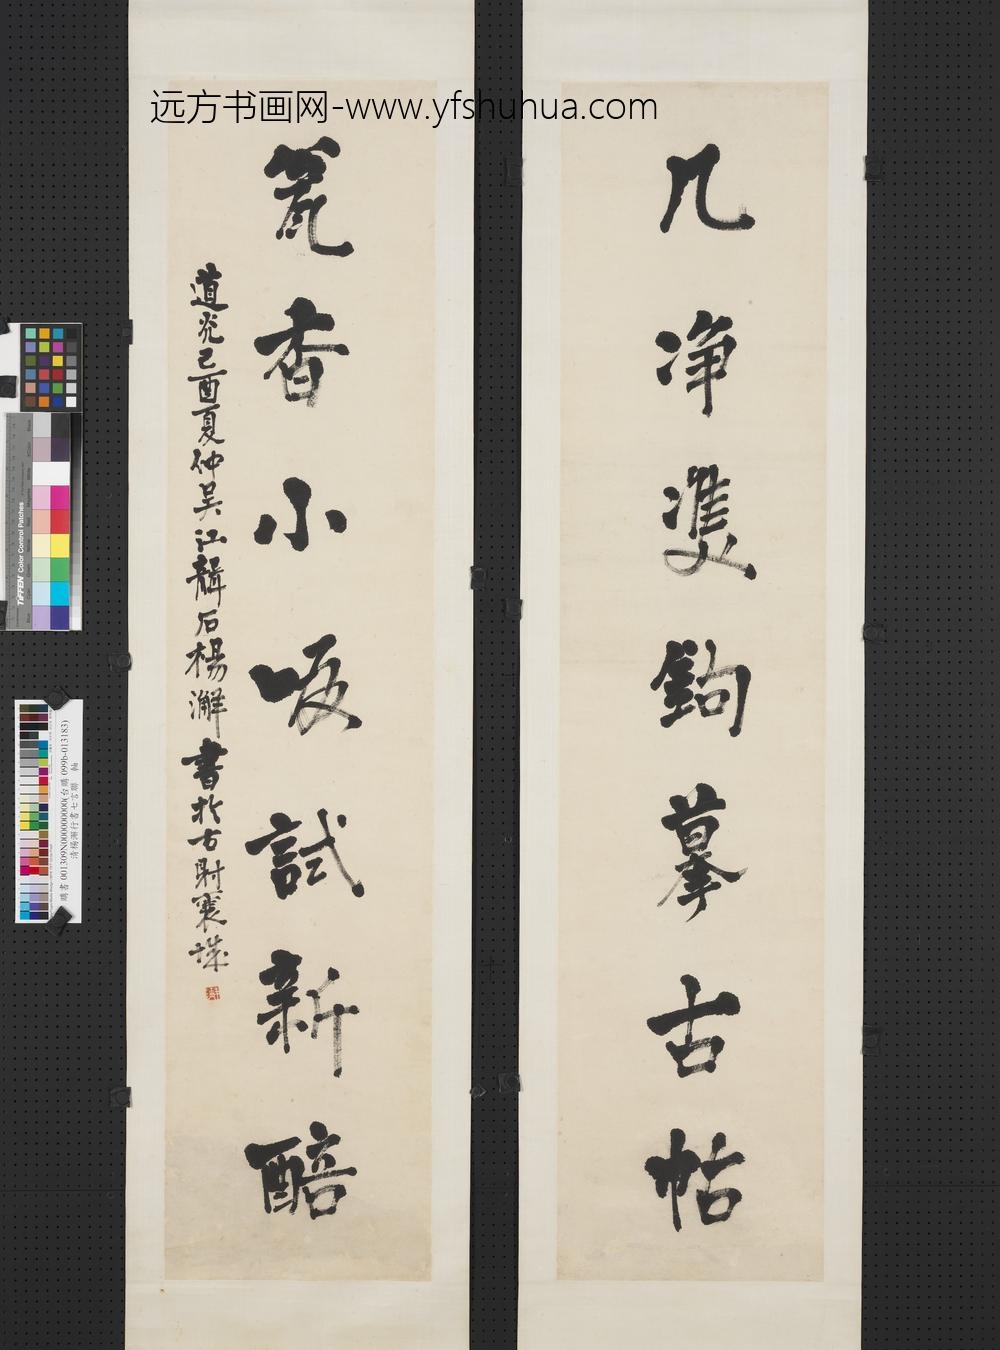 远方书画网-www.yfshuhua.com
几净雙鉤摹古帖
瓮香小啜試新醅
道光己酉夏仲吴江龍石楊澥書於古射襄城
TIFFEN Color Control Patches
購書 001309N000000000(台購 099b-013183)
清楊澥行書七言聯 軸